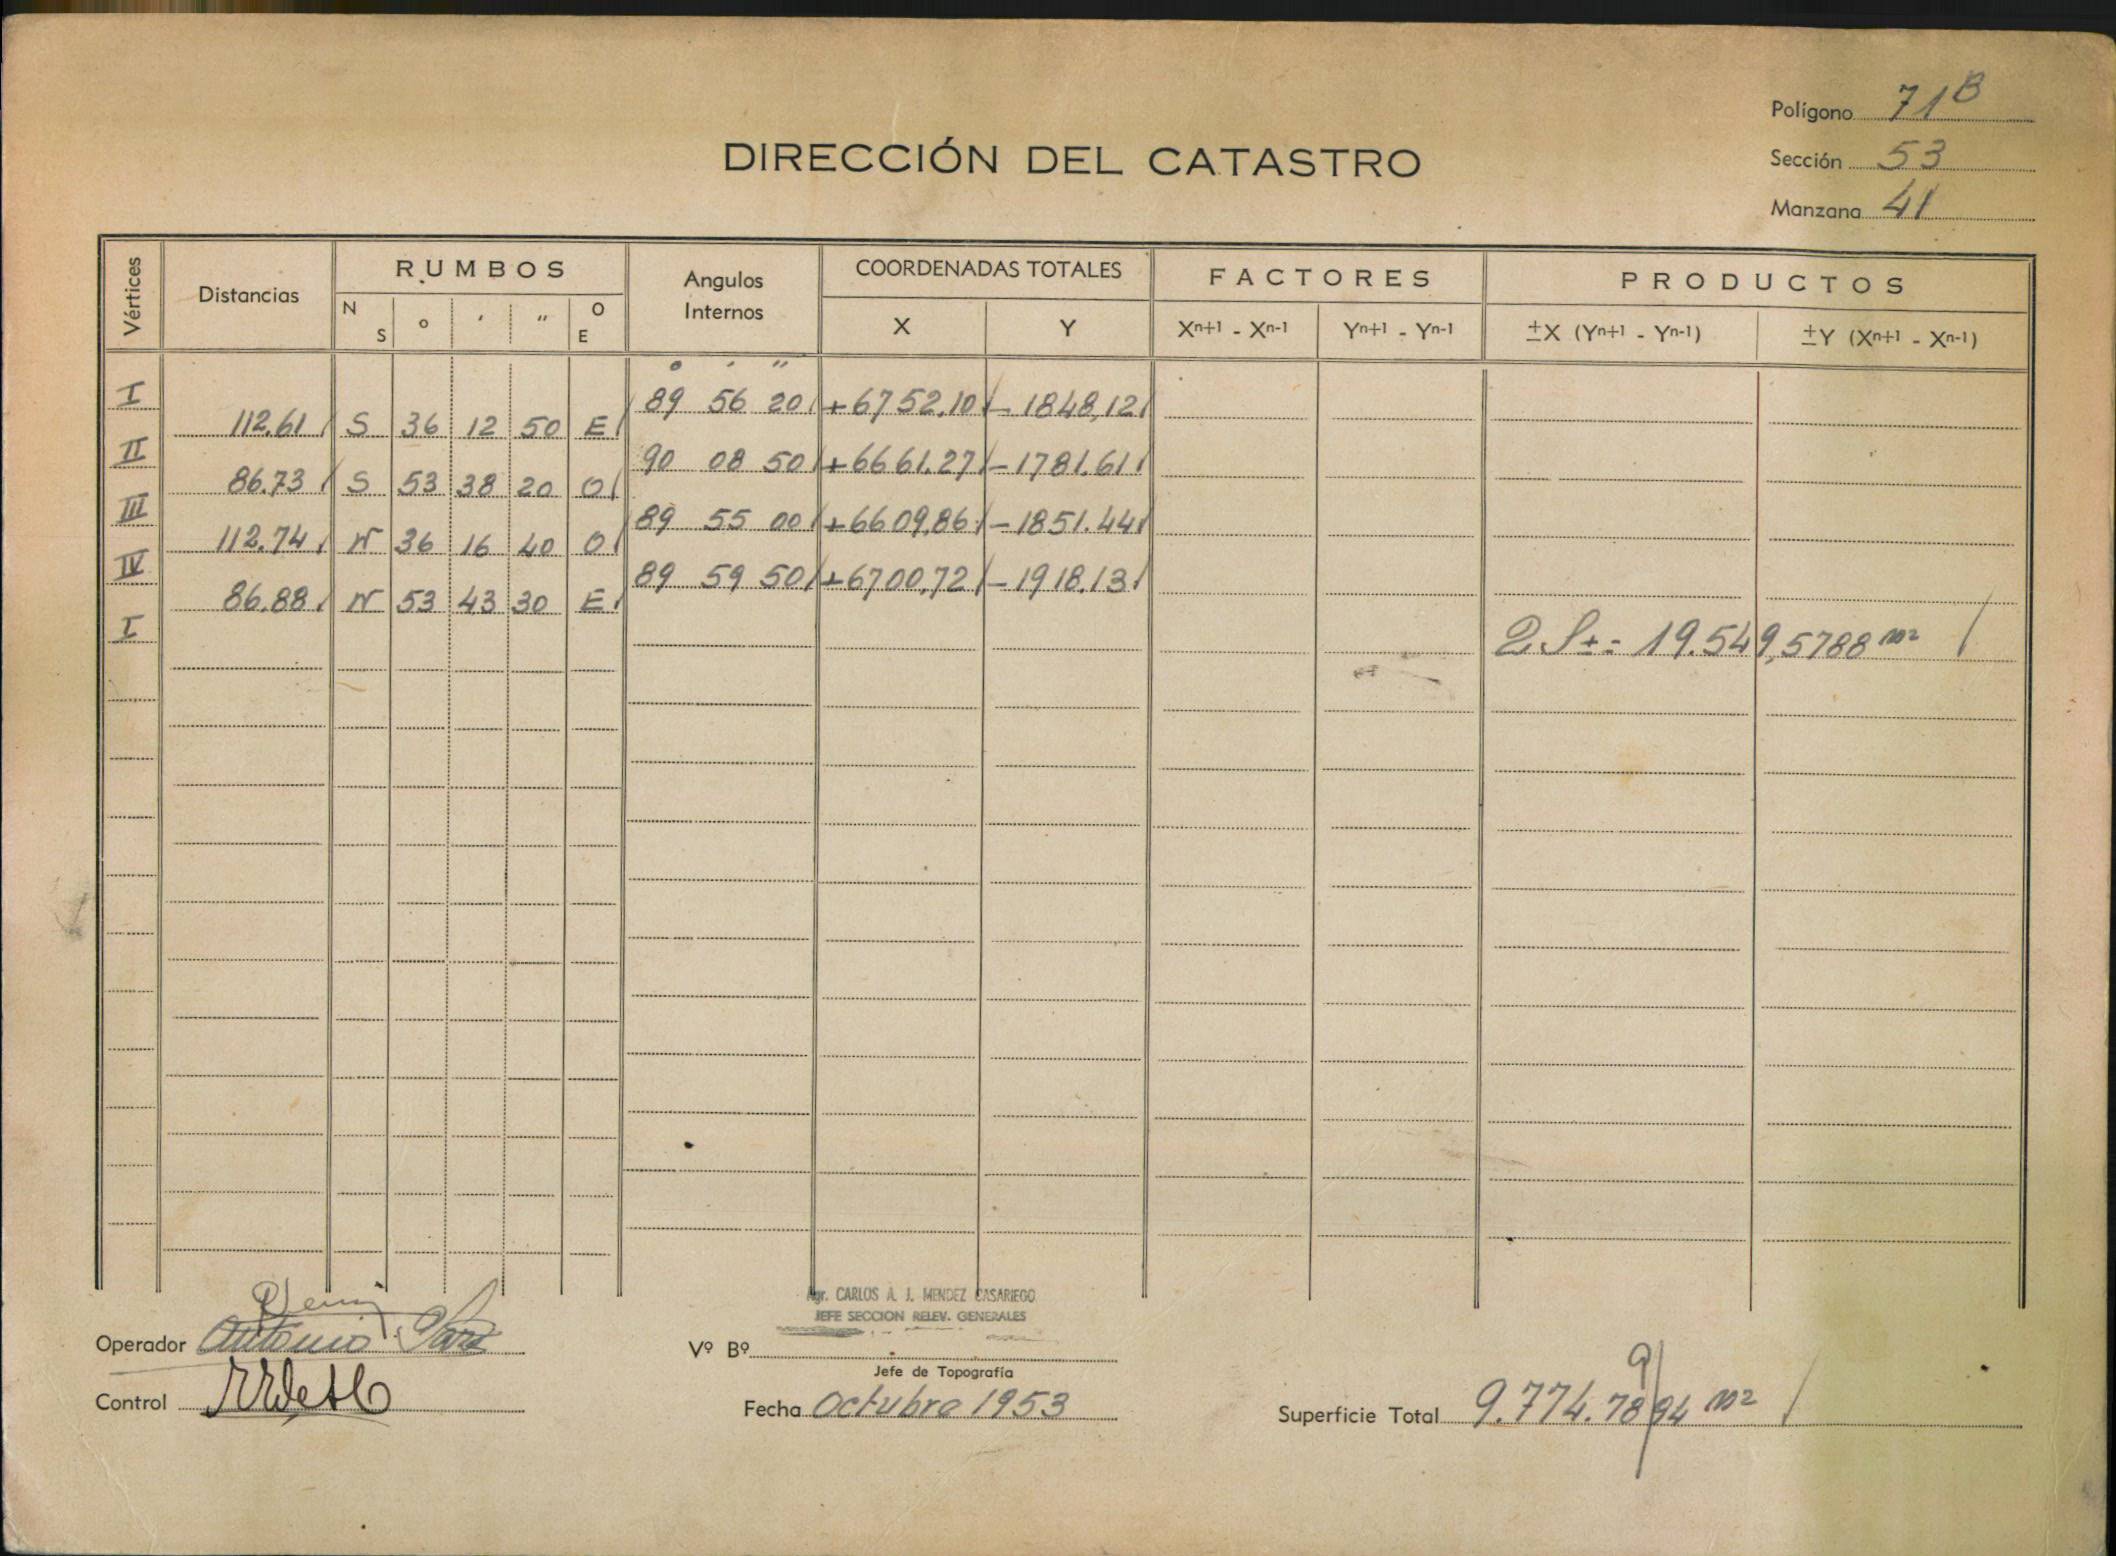 Polígono 71B
Sección 53
Manzana 41
DIRECCIÓN DEL CATASTRO
Vértices Distancias RUMBOS Angulos Internos COORDENADAS TOTALES FACTORES PRODUCTOS
N S o ′ ″ O E X Y Xn+1 - Xn-1 Yn+1 - Yn-1 ±X (Yn+1 - Yn-1) ±Y (Xn+1 - Xn-1)
o ′ ″
I 89 56 20 +6752.10 -1848,12
112.61 S 36 12 50 E
II 90 08 50 +6661.27 -1781.61
86.73 S 53 38 20 O
III 89 55 00 +6609.86 -1851.44
112.74 N 36 16 40 O
IV 89 59 50 +6700.72 -1918.13
86.88 N 53 43 30 E
I 2S±= 19.549,5788 m2
Agr. CARLOS A. J. MENDEZ CASARIEGO
JEFE SECCION RELEV. GENERALES
Operador Antonio
Vº Bº
Jefe de Topografía
Control
Fecha Octubre 1953
Superficie Total 9.774.7894 m2
9